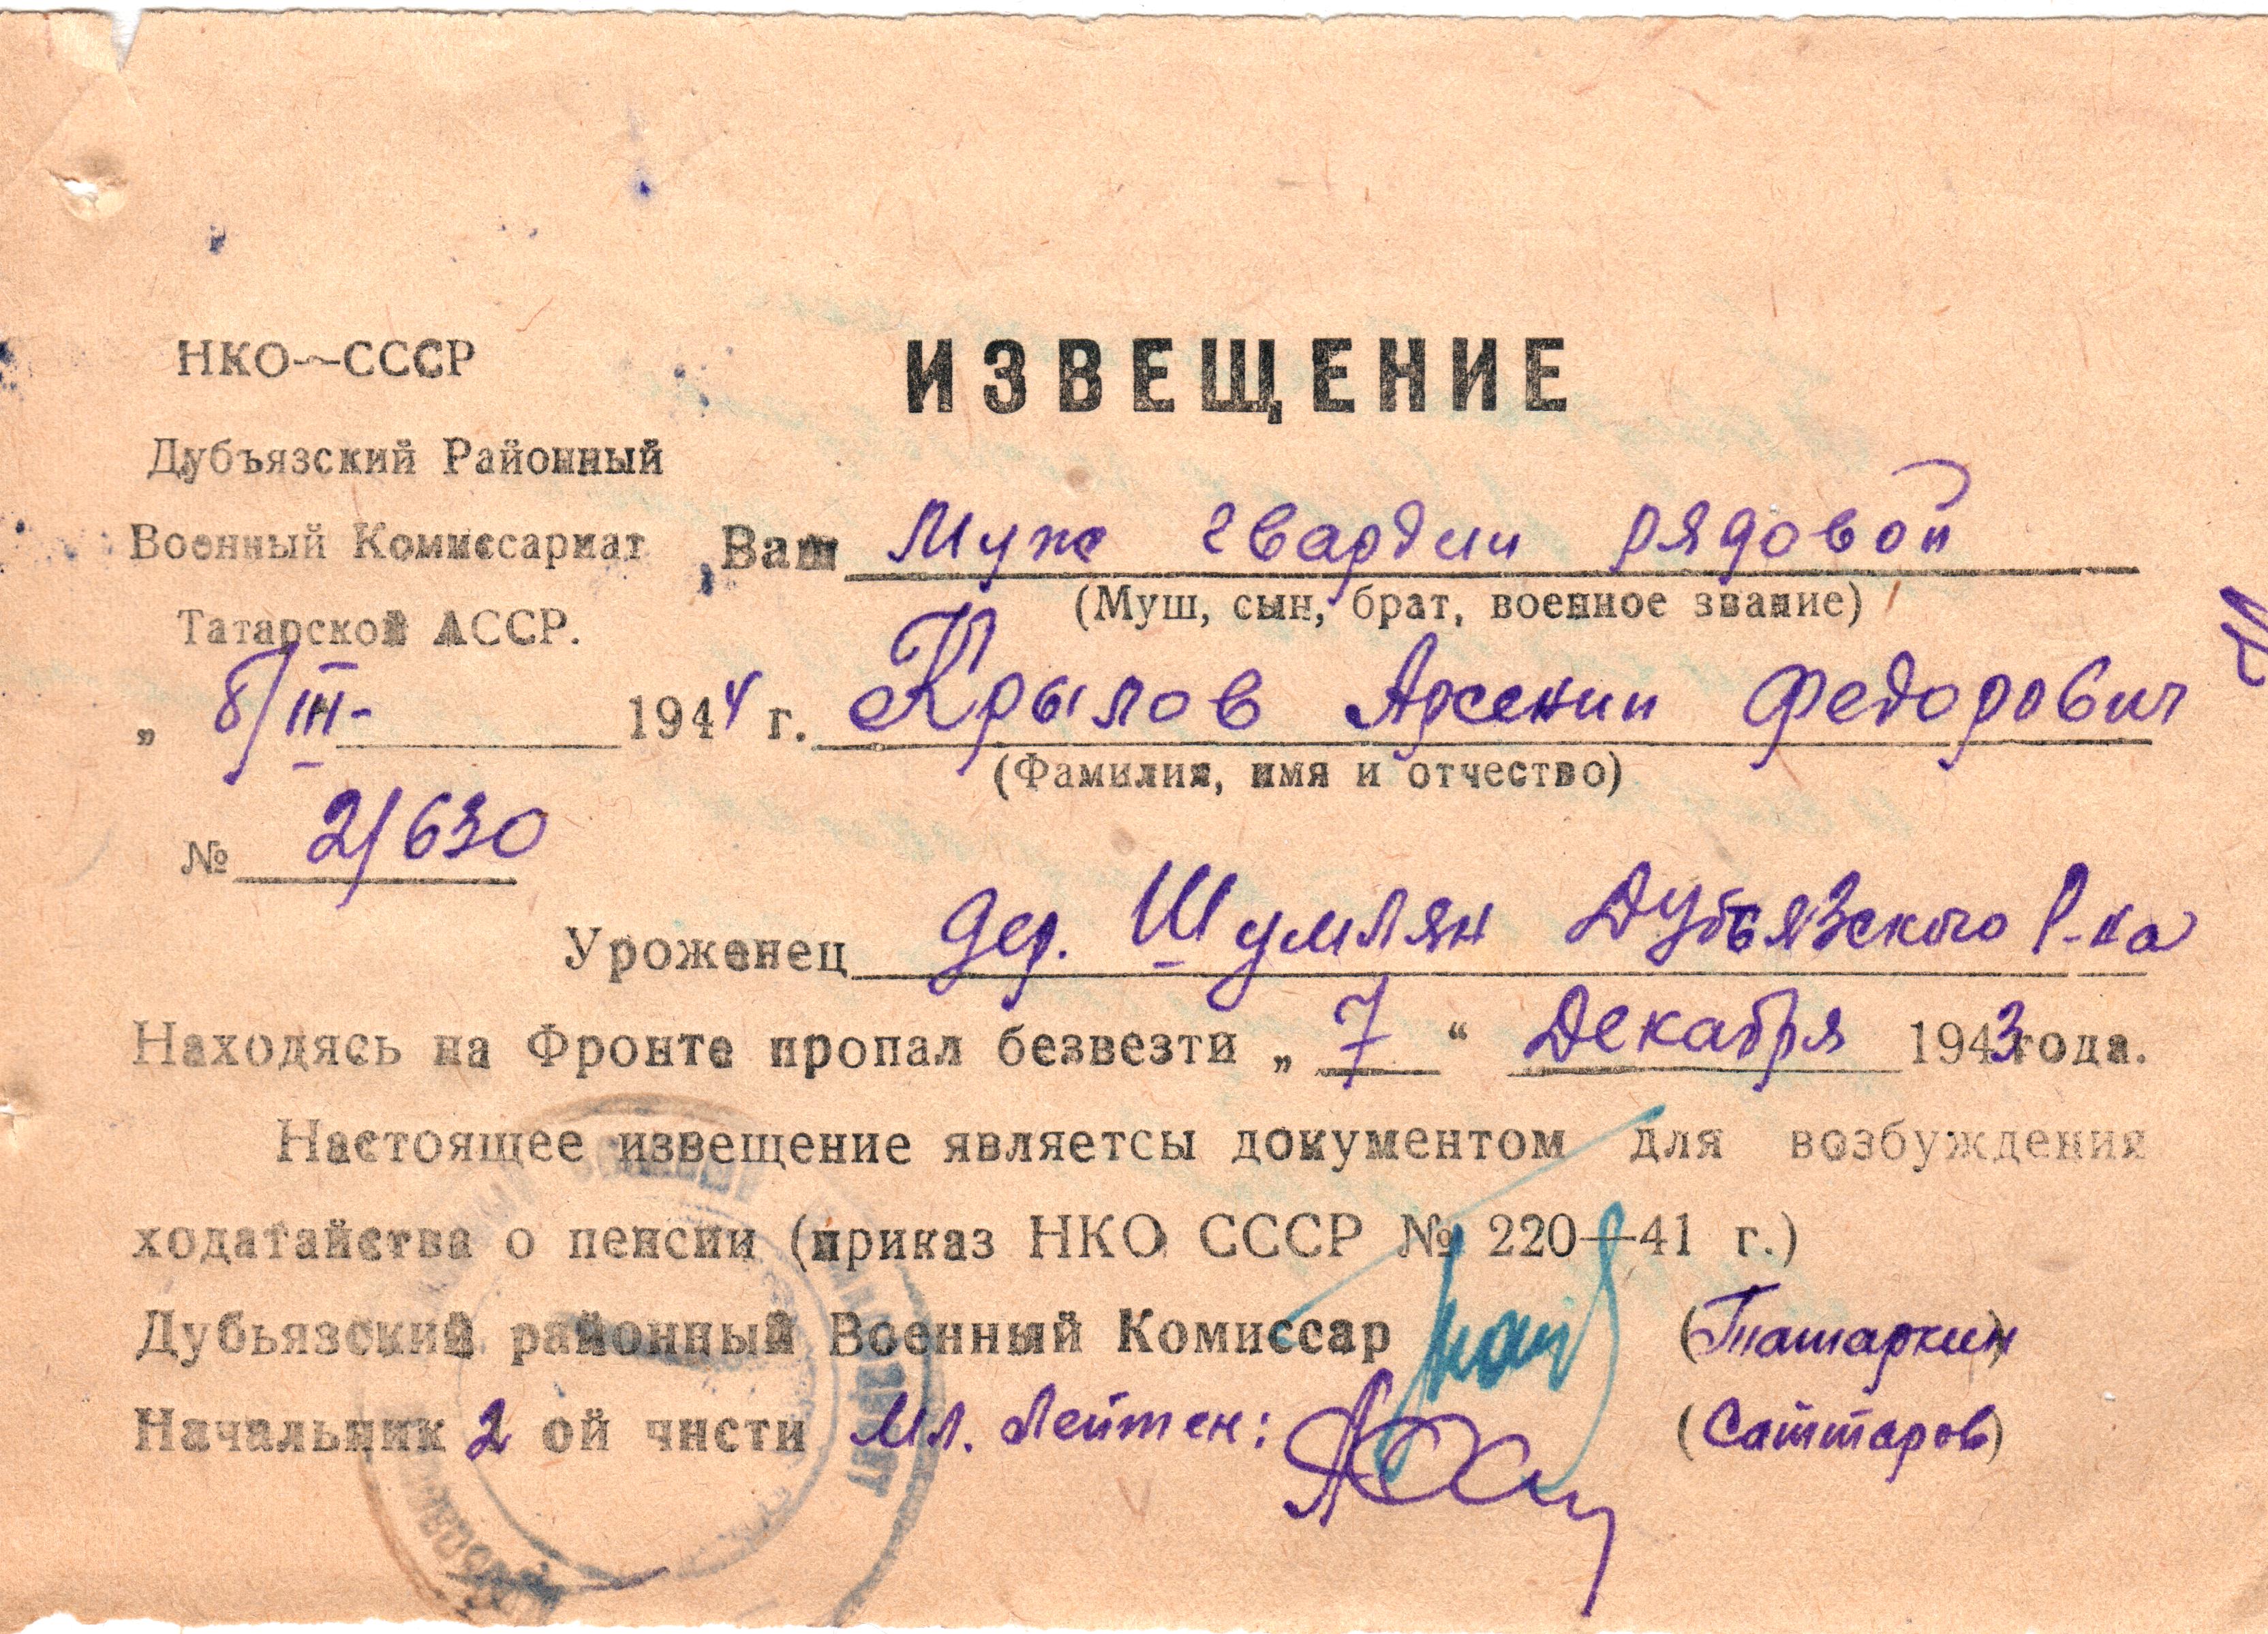 НКО—СССР
ИЗВЕЩЕНИЕ
Дубъязский Районный
Военный Комиссариат
Ваш муж гвардии рядовой
(Муш, сын, брат, военное звание)
Татарской АССР.
„ 8/III- 1944 г.
Крылов Арсении Федорович
(Фамилия, имя и отчество)
№ 2/630
Уроженец дер. Шумлян Дубъязского р-на
Находясь на Фронте пропал безвезти „ 7 “ Декабря 1943 года.
Настоящее извещение являетсы документом для возбуждения
ходатайства о пенсии (приказ НКО СССР № 220—41 г.)
Дубьязский районный Военный Комиссар (Татаркин)
Начальник 2 ой чнсти Мл. Лейтен: (Саттаров)